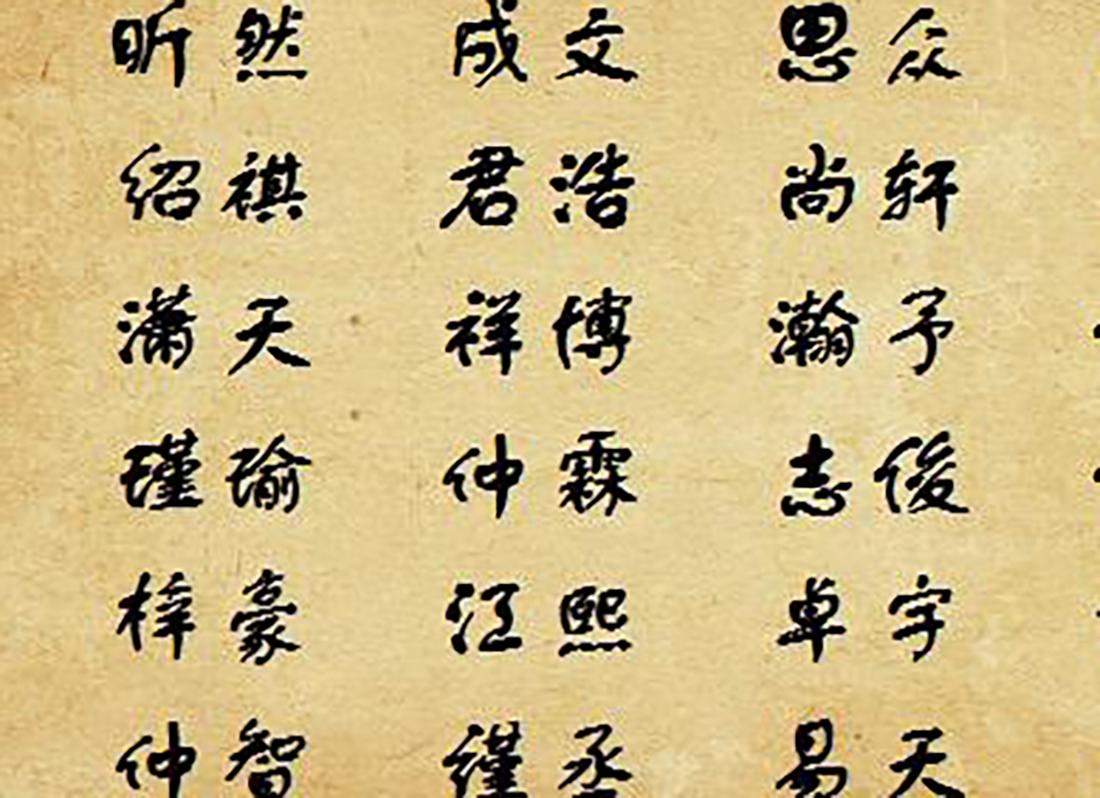 昕然 成文 思众
绍祺 君浩 尚轩
潇天 祥博 瀚予
瑾瑜 仲霖 志俊
梓豪 熙 卓宇
仲智 瑾丞 易天